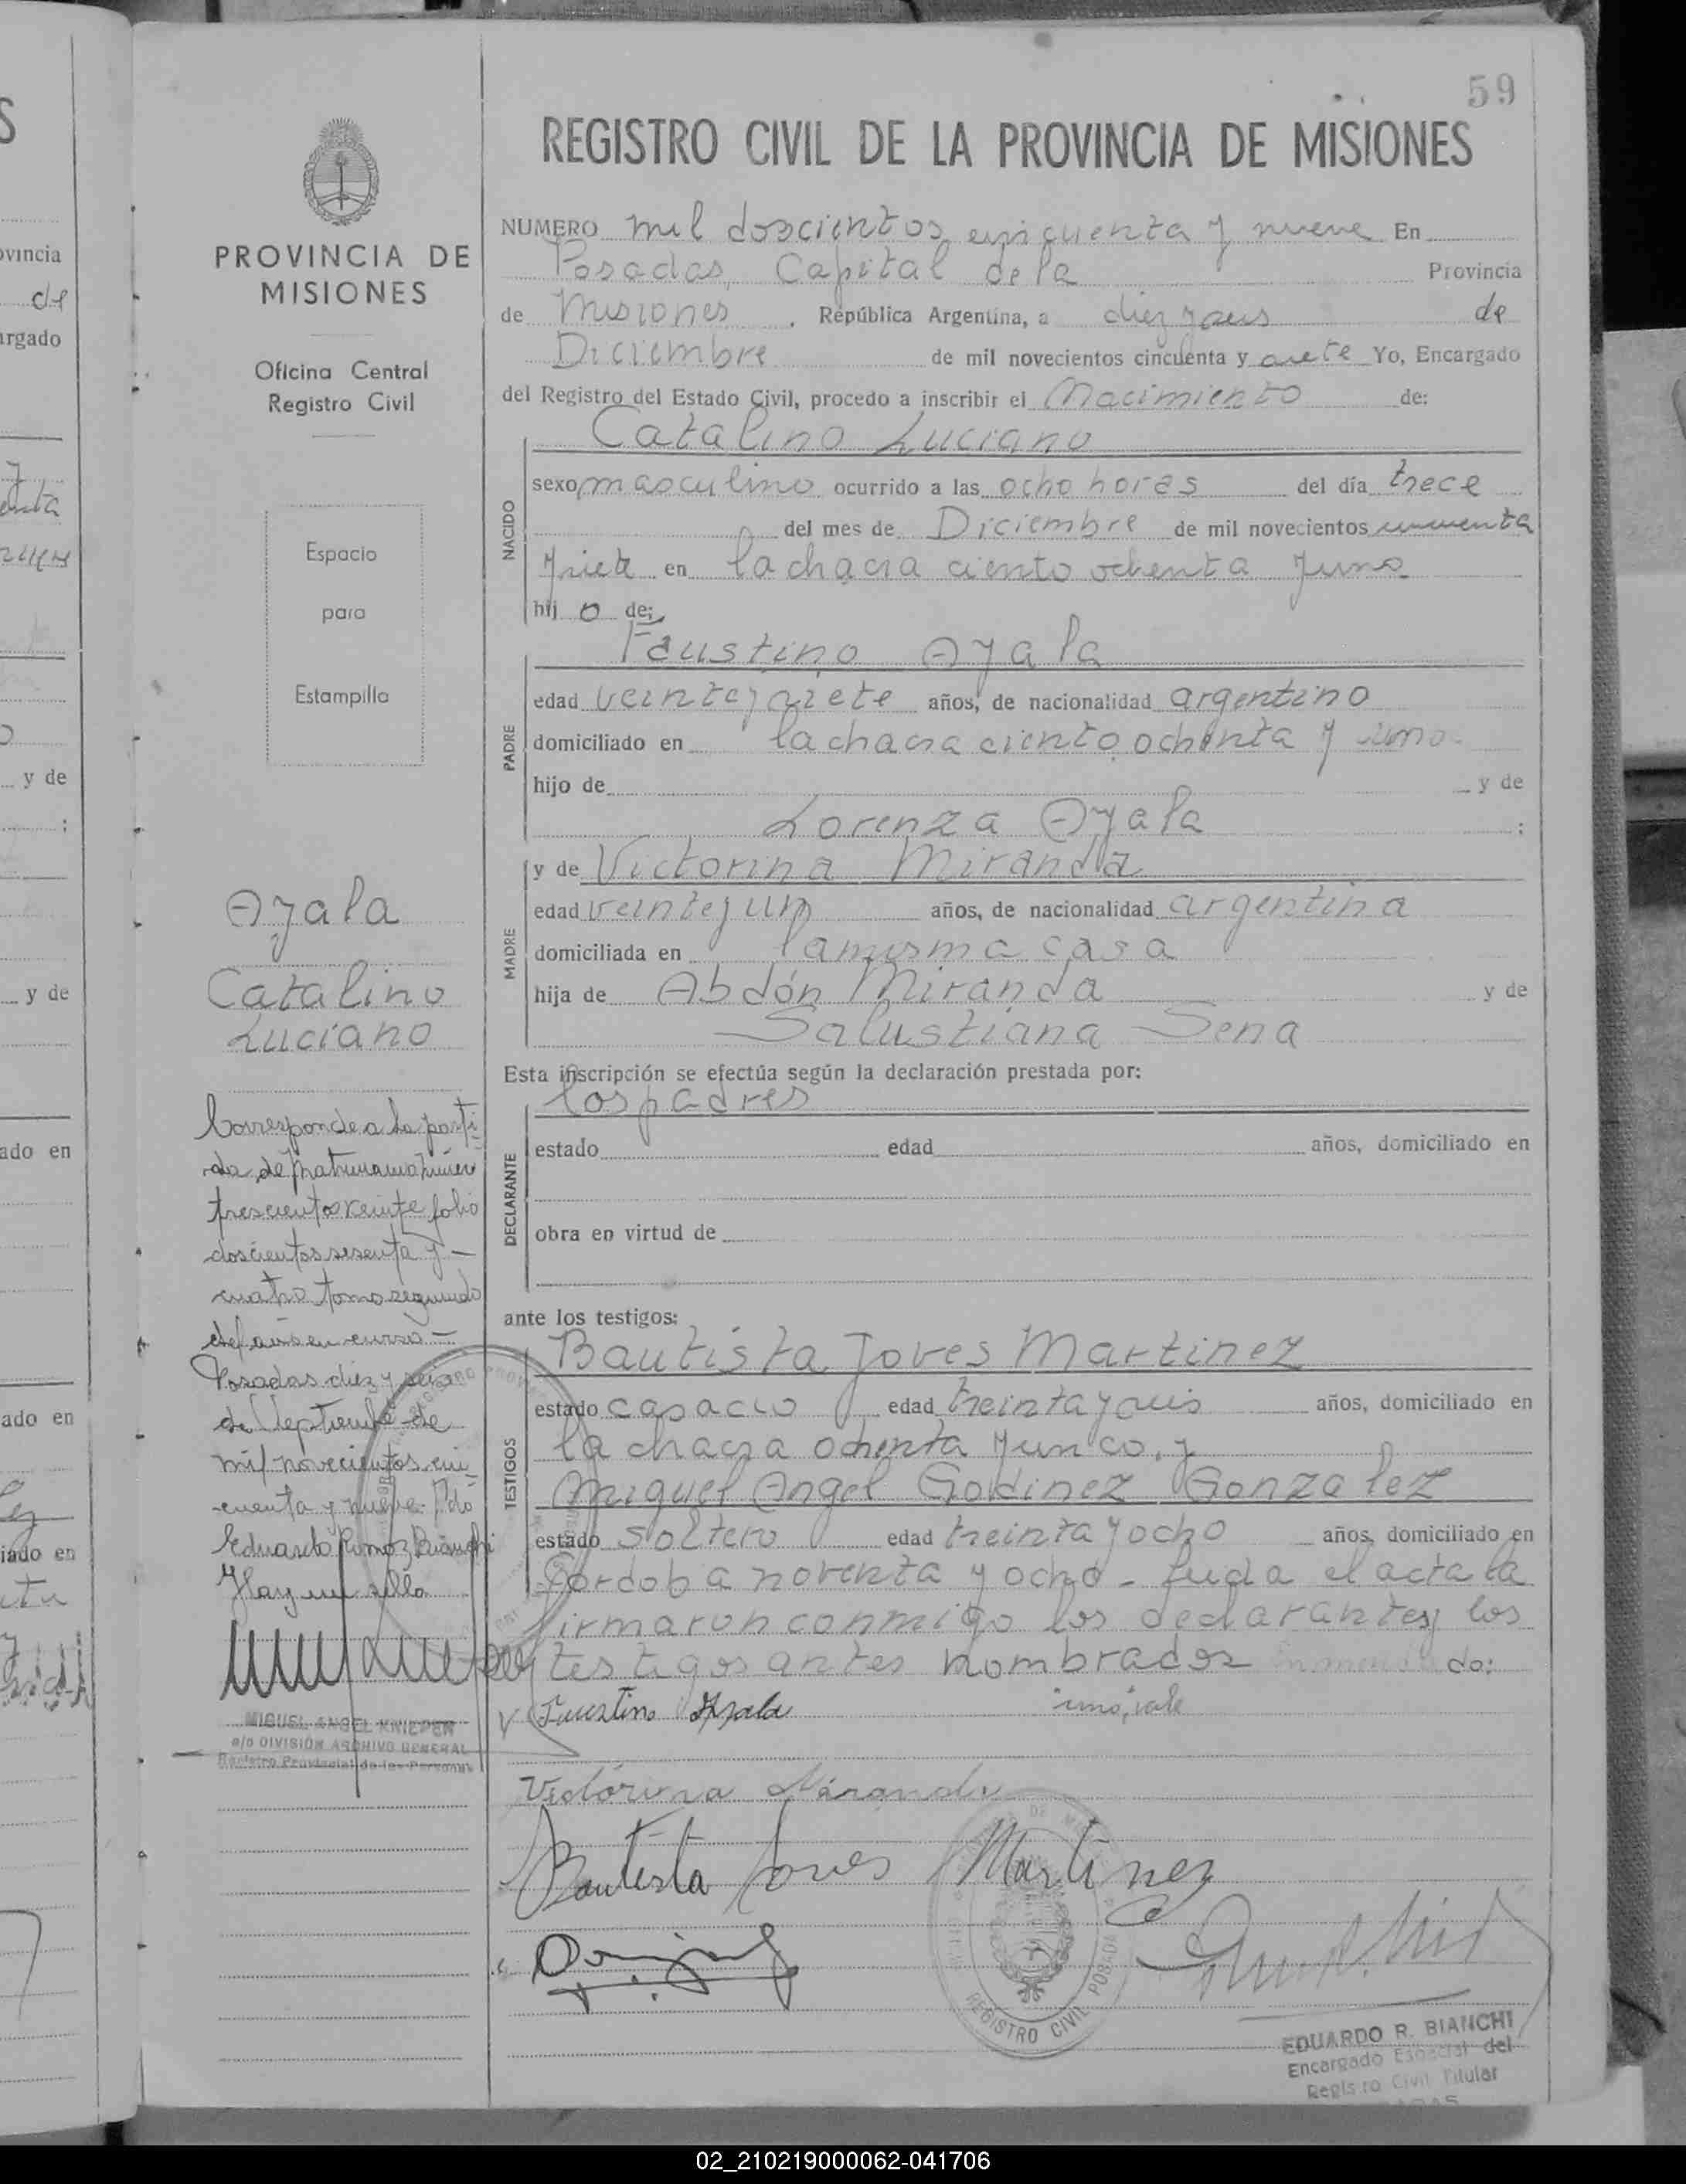 59
REGISTRO CIVIL DE LA PROVINCIA DE MISIONES
PROVINCIA DE
MISIONES
Oficina Central
Registro Civil
Espacio
para
Estampilla
Ayala
Catalino
Luciano
Corresponde a la parti-
da de matrimonio número
trescientos veinte folio
doscientos sesenta y
cuatro tomo segundo
del año en curso.—
Posadas diez y seis
de Septiembre de
mil novecientos cin-
cuenta y nueve. Fdo
Eduardo Ramos Bianchi
Hay un sello
MIGUEL ANGEL KNIEPER
a/c DIVISION ARCHIVO GENERAL
Registro Provincial de las Personas
NUMERO mil doscientos cincuenta y nueve En
Posadas, Capital de la Provincia
de Misiones, República Argentina, a diez y seis de
Diciembre de mil novecientos cincuenta y siete Yo, Encargado
del Registro del Estado Civil, procedo a inscribir el Nacimiento de:
NACIDO
Catalino Luciano
sexo masculino ocurrido a las ocho horas del día trece
del mes de Diciembre de mil novecientos cincuenta
y siete en la chacra ciento ochenta y uno
hij o de:
PADRE
Faustino Ayala
edad veinte y siete años, de nacionalidad argentino
domiciliado en la chacra ciento ochenta y uno
hijo de y de
Lorenza Ayala ;
MADRE
y de Victorina Miranda
edad veinte y un años, de nacionalidad argentina
domiciliada en la misma casa
hija de Abdón Miranda y de
Salustiana Sena
Esta inscripción se efectúa según la declaración prestada por:
DECLARANTE
los padres
estado edad años, domiciliado en
obra en virtud de
ante los testigos:
TESTIGOS
Bautista Joves Martinez
estado casado edad treinta y seis años, domiciliado en
la chacra ochenta y cinco, y
Miguel Angel Godinez Gonzalez
estado soltero edad treinta y ocho años, domiciliado en
Córdoba noventa y ocho - Leida el acta la
firmaron conmigo los declarantes y los
testigos antes nombrados enmendado:
uno, vale
Faustino Ayala
Victorina Miranda
Bautista Joves Martinez
REGISTRO CIVIL POSADAS
EDUARDO R. BIANCHI
Encargado Especial del
Registro Civil Titular
02_210219000062-041706